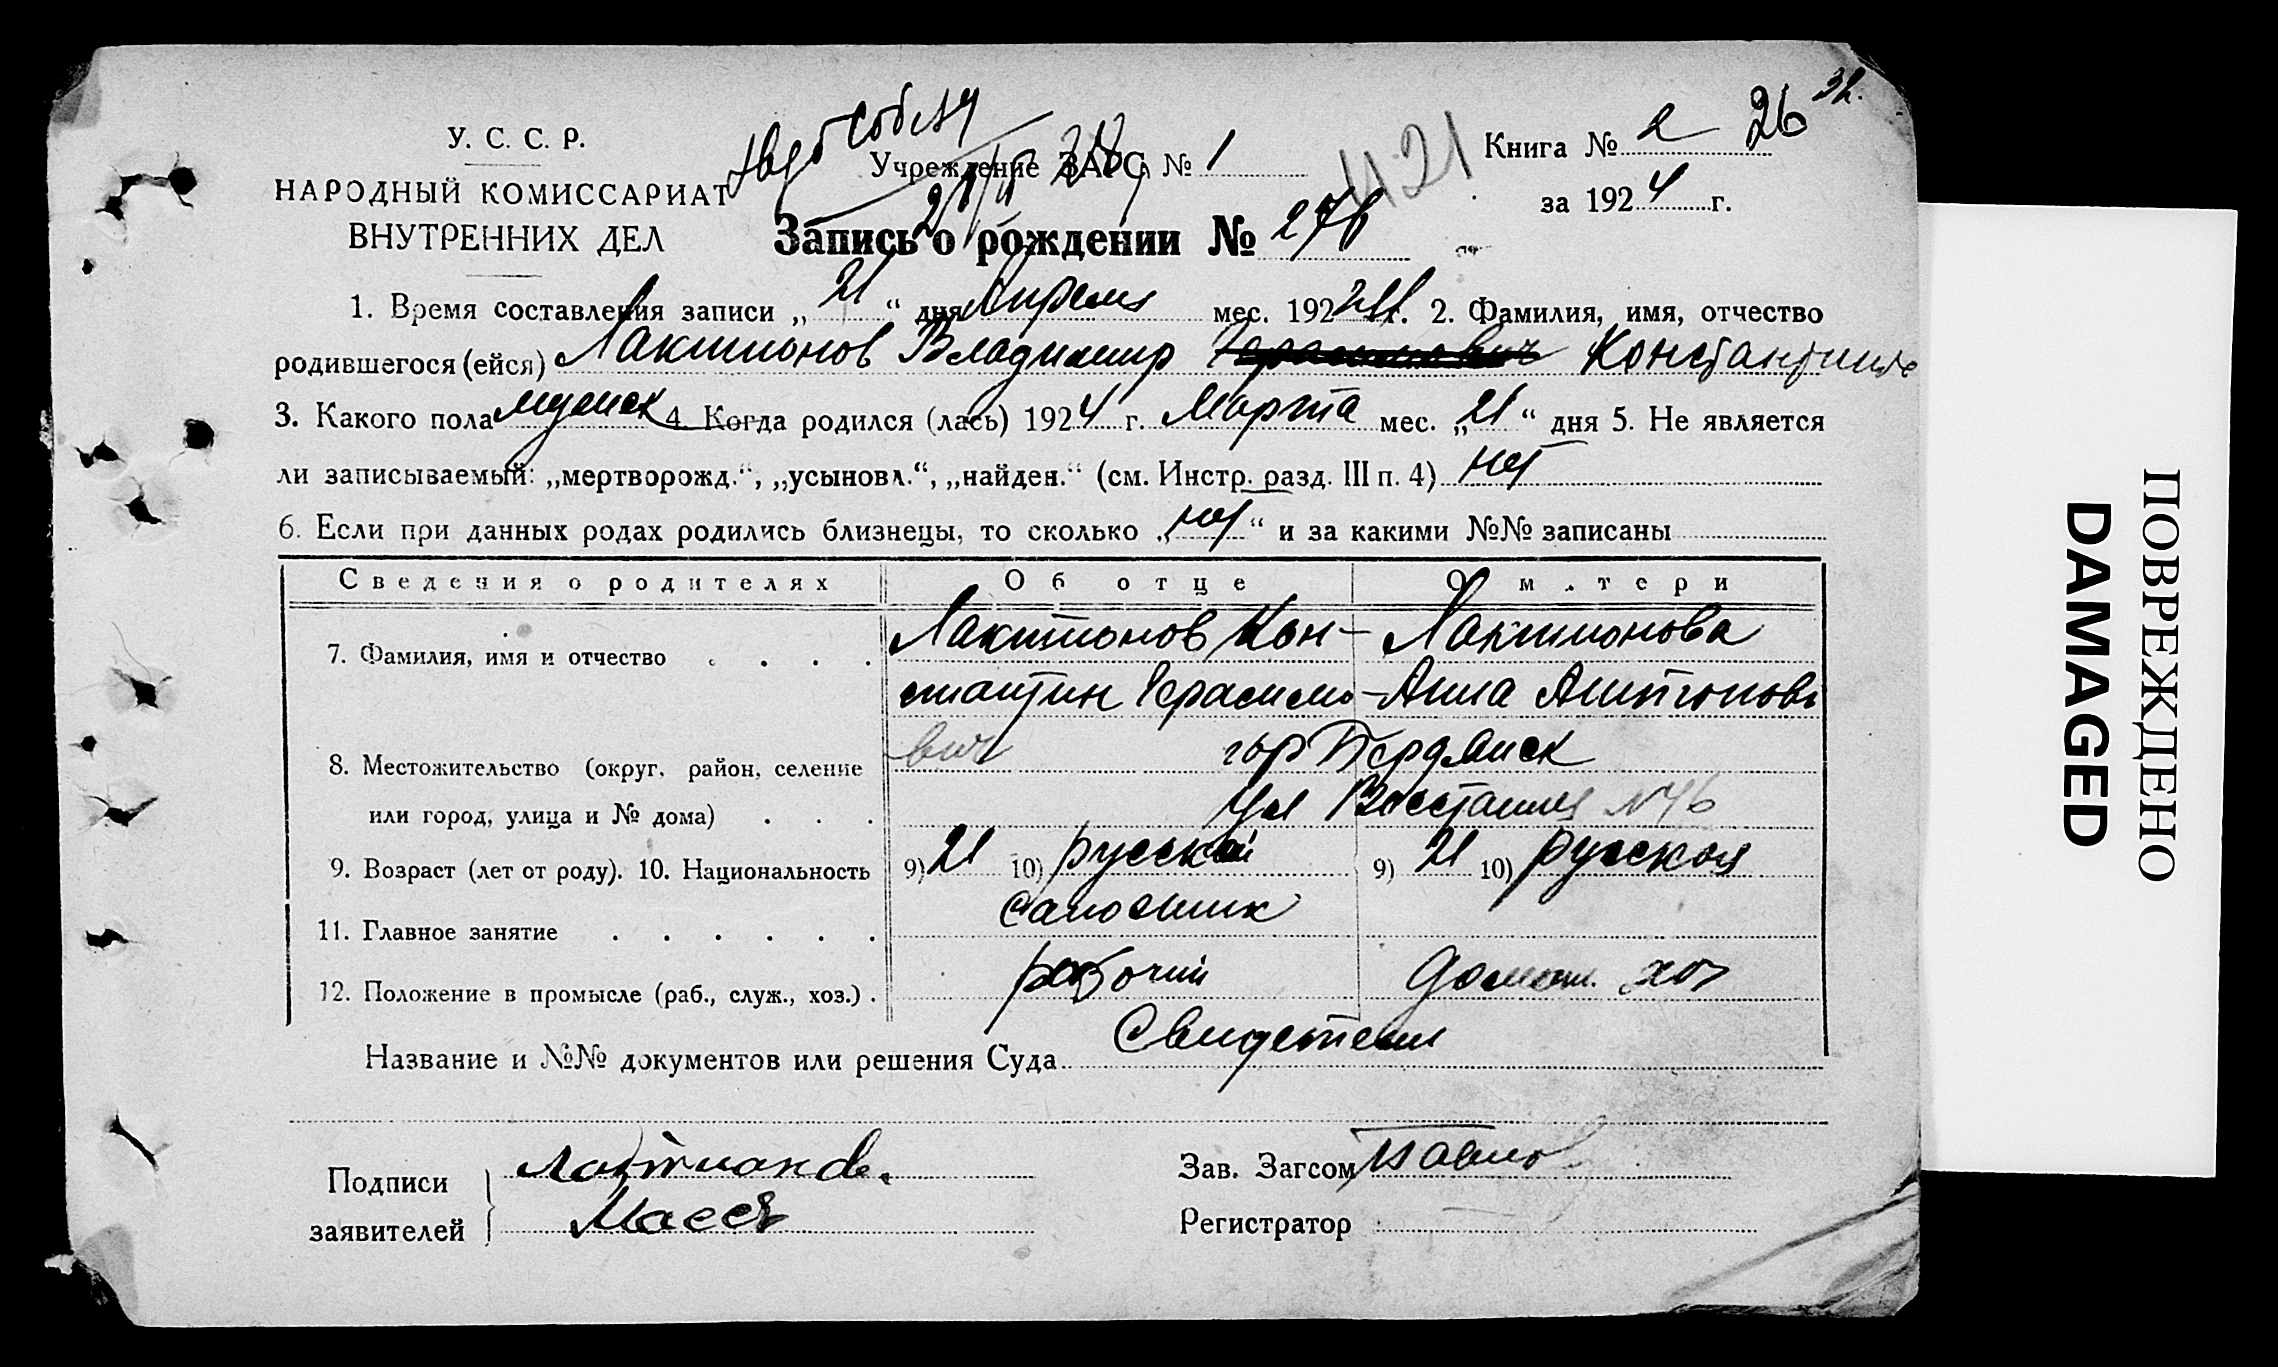 26
У. С. С. Р.
Учреждение ЗАГС № 1
421
Книга № 2
НАРОДНЫЙ КОМИССАРИАТ
за 1924 г.
ВНУТРЕННИХ ДЕЛ
Запись о рождении № 276
1. Время составления записи „ 21 “ дня Апреля мес. 192 24 г. 2. Фамилия, имя, отчество
родившегося (ейся) Лактионов Владимир Герасимович Константино
3. Какого пола мужск 4. Когда родился (лась) 1924 г. Марта мес. „ 21 “ дня 5. Не является
ли записываемый: „мертворожд.“, „усыновл.“, „найден.“ (см. Инстр. разд. III п. 4) нет
6. Если при данных родах родились близнецы, то сколько „ нет “ и за какими №№ записаны
Сведения о родителях Об отце О м.тери
7. Фамилия, имя и отчество . . . .
Лактионов Кон-
стантин Герасимо-
вич
Лактионова
Анна Антонов
8. Местожительство (округ, район, селение
или город, улица и № дома) . . .
гор Бердянск
ул Восстания № 46
9. Возраст (лет от роду). 10. Национальность 9) 21 10) русский 9) 21 10) русская
11. Главное занятие . . . . . . Сапожник
12. Положение в промысле (раб., служ., хоз.) . рабочий домаш. хоз
Название и №№ документов или решения Суда Свидетели
Подписи
заявителей
Зав. Загсом
Регистратор
ПОВРЕЖДЕНО
DAMAGED